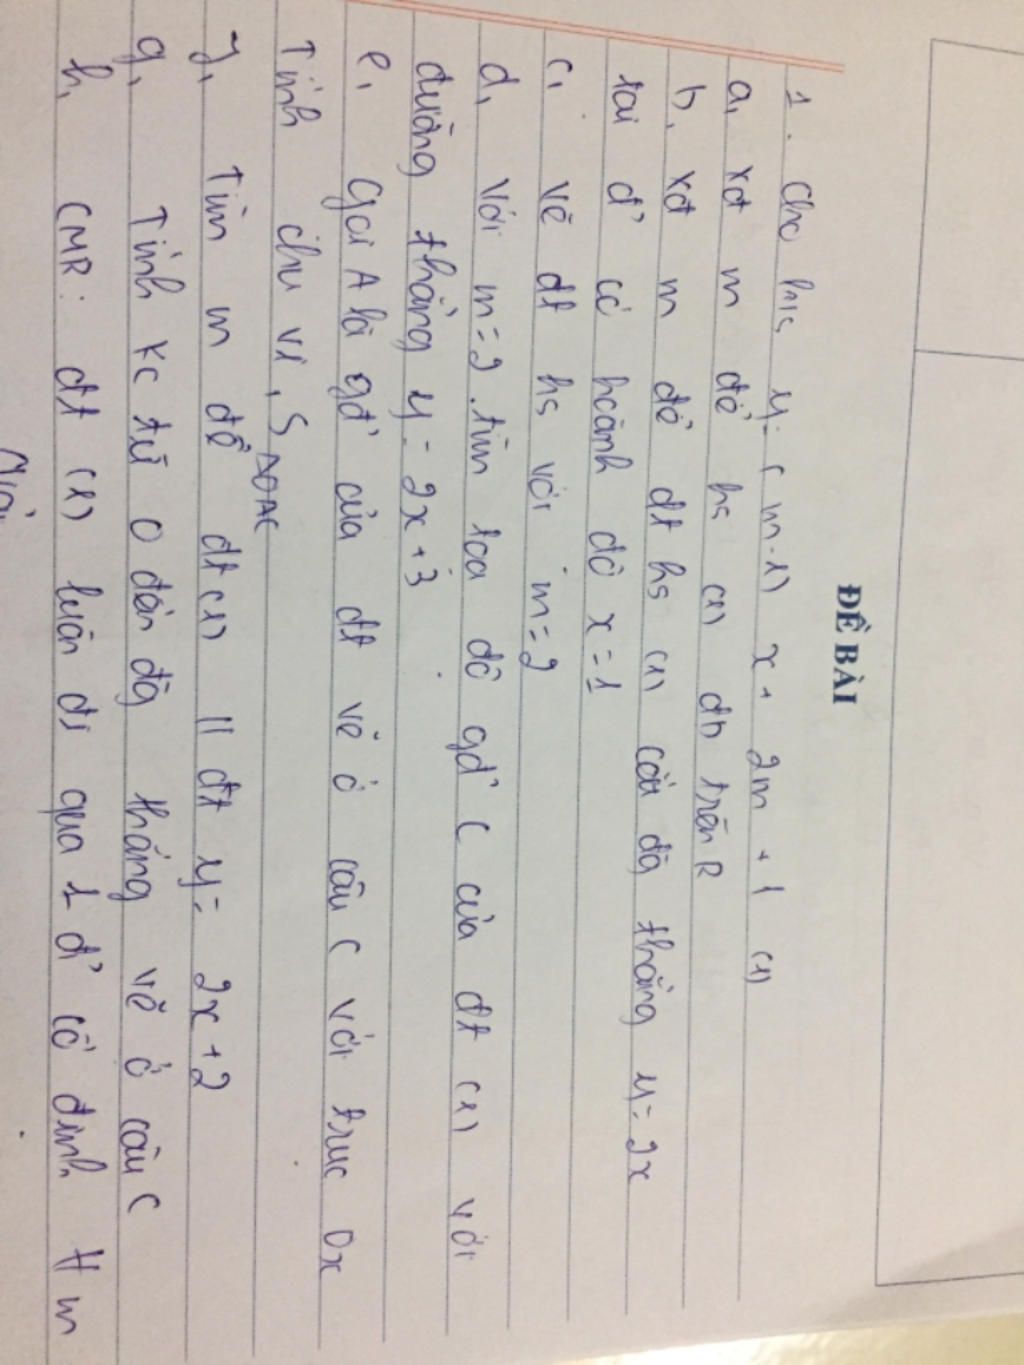 ĐỀ BÀI
1. Cho hs y=(m-1) x + 2m + 1 (1)
a, xđ m để hs (1) đb trên R
b, xđ m để đt hs (1) cắt đg thẳng y = 2x
tại đ' có hoành độ x = 1
c, vẽ đt hs với m = 2
d, với m = 2. tìm toạ độ gđ' C của đt (1) với
đường thẳng y = 2x + 3
e, Gọi A là gđ' của đt vẽ ở câu C với trục Ox
Tính chu vi, S ΔOAC
f, Tìm m để đt (1) // đt y = 2x + 2
g, Tính kc từ O đến đg thẳng vẽ ở câu C
h, CMR: đt (1) luôn đi qua 1 đ' cố định ∀ m